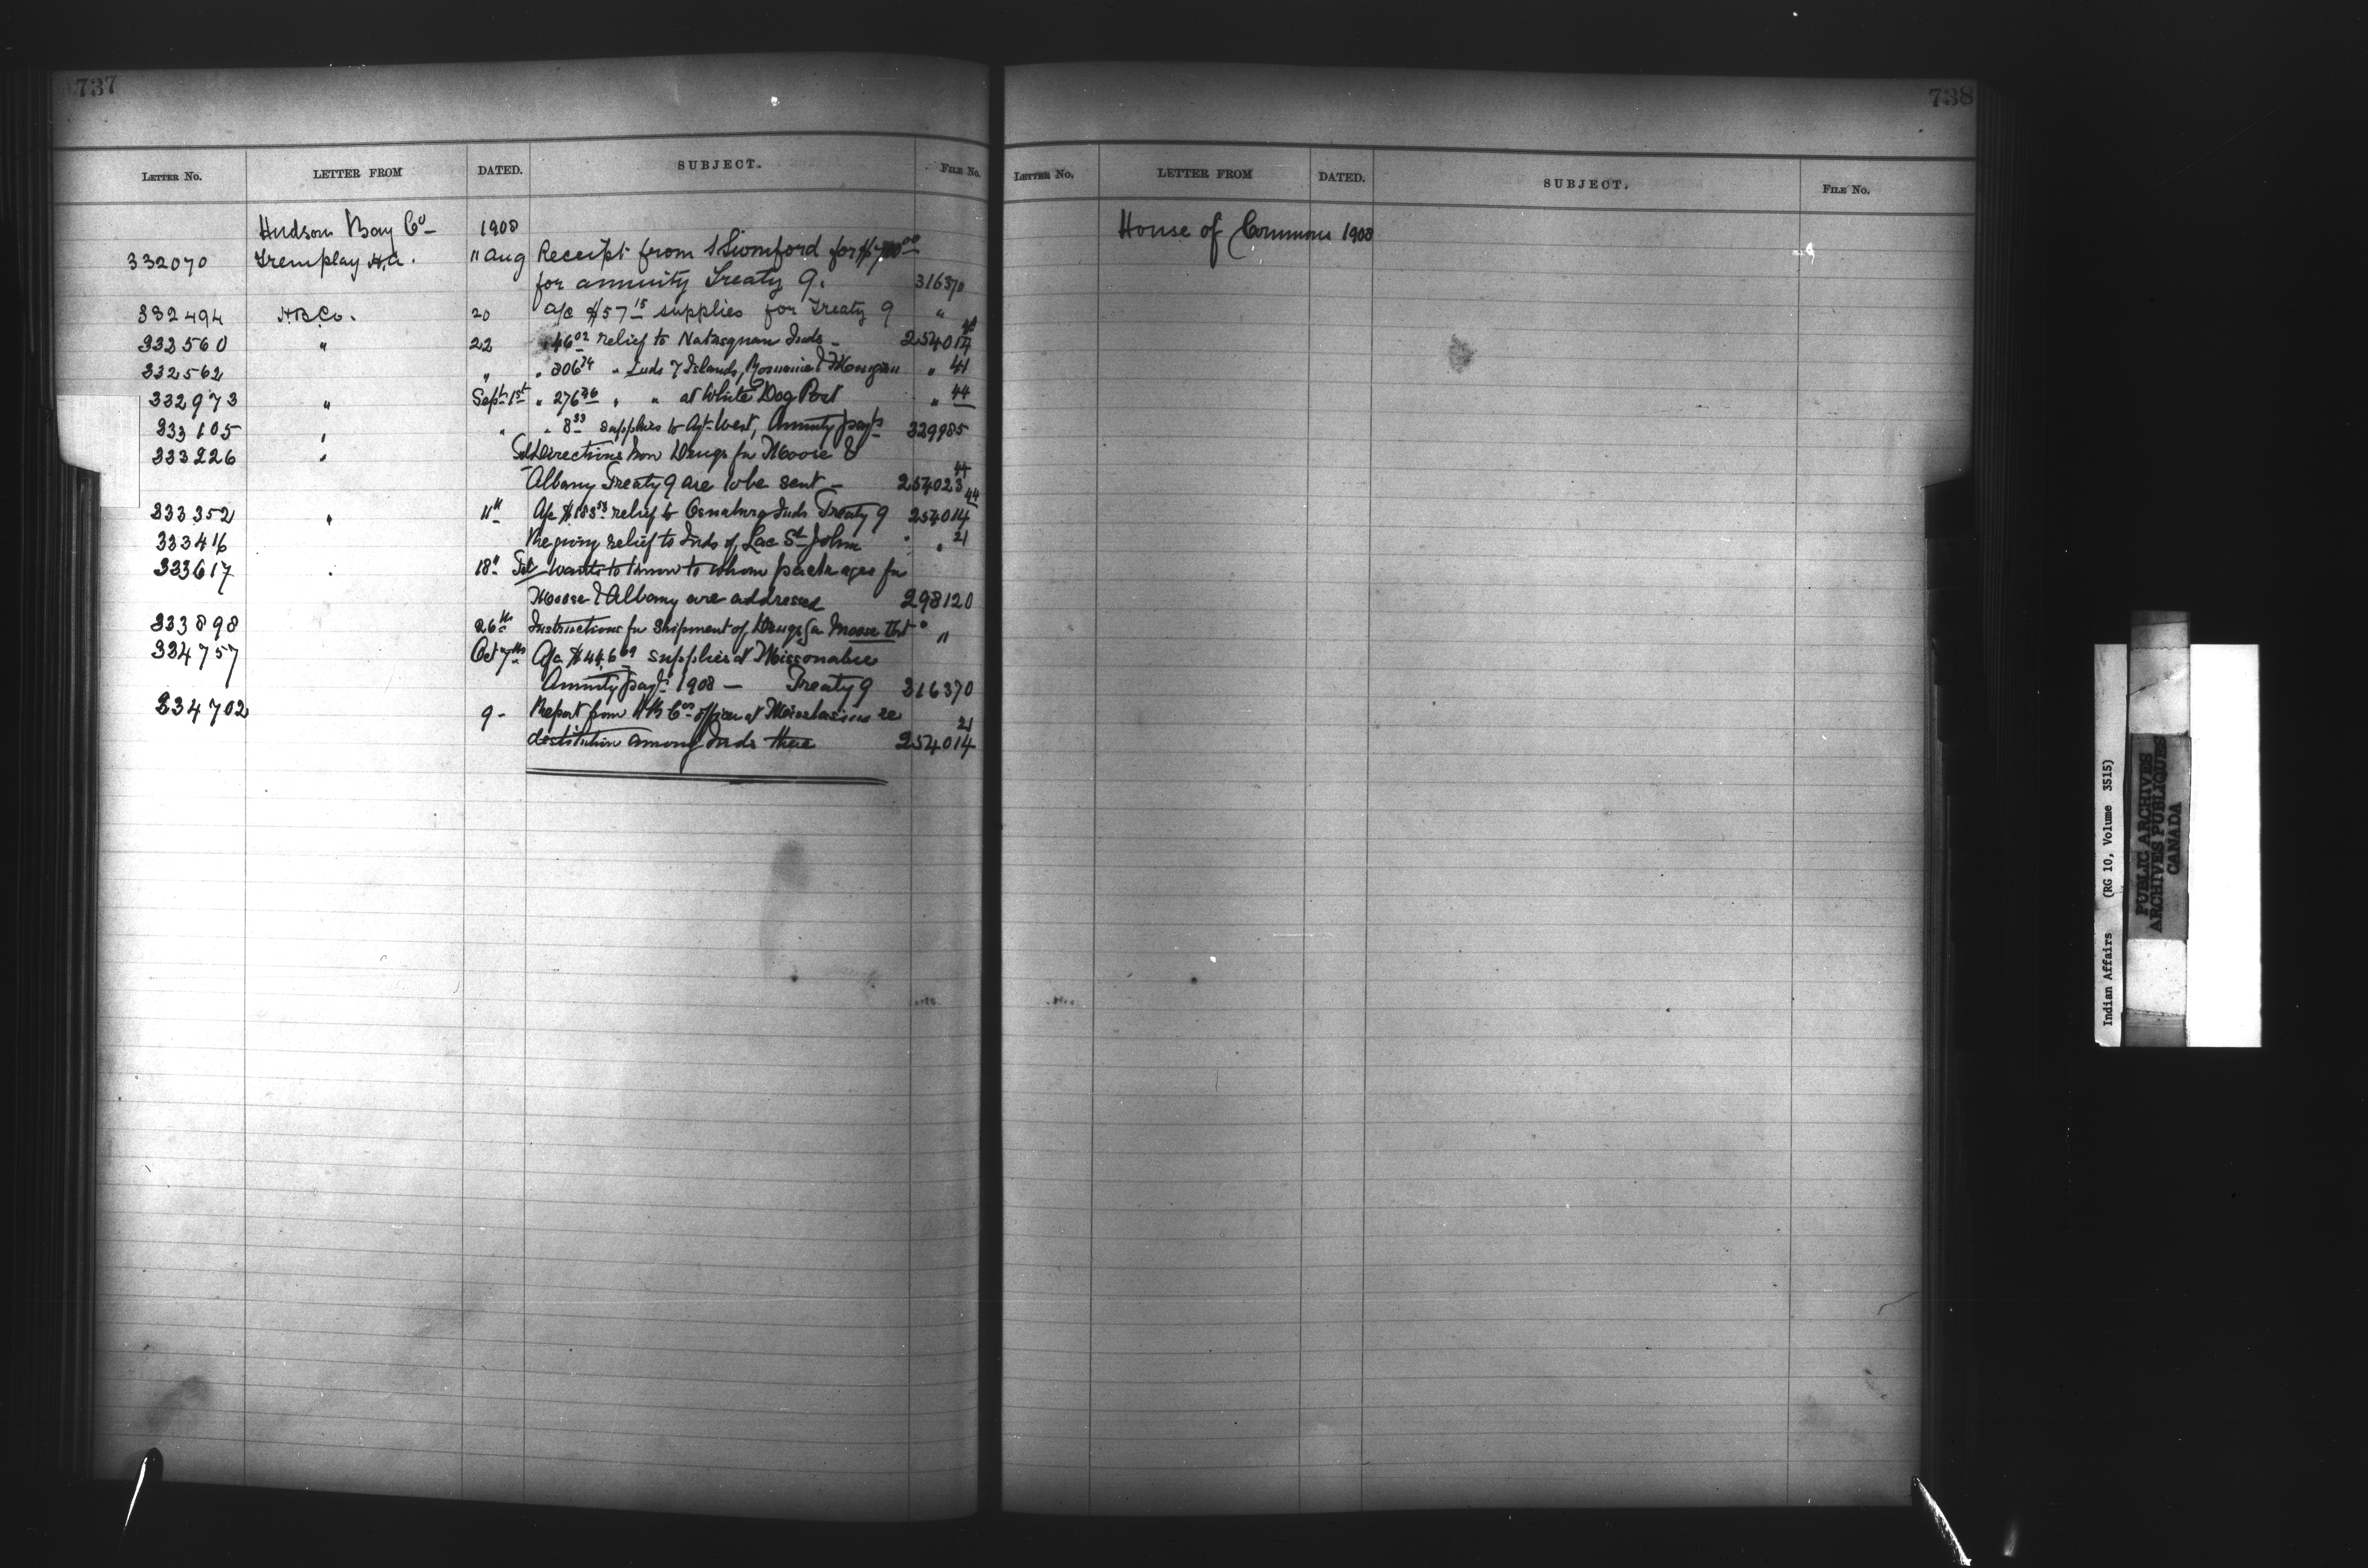 737
LETTER NO. LETTER FROM DATED. SUBJECT. FILE NO.
Hudson Bay Co 1908
332070 Tremplay H.A. 11 Aug Receipt from for
for annuity Treaty 9. 316370
332494 H.B.Co. 20 a/c $57 15 supplies for Treaty 9 "
332560 " 22 " 46 02 relief to Natasquan Inds - 254014
332562 " " 306 74 " Inds 7 Islands, & Mingan " 41
332973 " Sept 1st " 276 36 " " at White Dog Post " 44
333105 " " " 8 33 supplies to Agt West, Annuity payts 329985
333226 " Tel Directions how Drugs for Moose & 44
Albany Treaty 9 are to be sent - 254023
333352 " 11th A/c $183 53 relief to Osnaburg Inds Treaty 9 254014 44
333416 Re giving relief to Inds of Lac St John " 21
333617 " 18th Tel wants to know to whom packages for
Moose & Albany are addressed 298120
333898 26th Instructions for Shipment of Drugs for Moose Fort "
334757 Oct 7th A/c $44.6 09 supplies at Missanabie
Annuity payt 1908 - Treaty 9 316370
334702 9 - Report from HB Cos officer at re 21
destitution among Inds there 254014
738
LETTER NO. LETTER FROM DATED. SUBJECT. FILE NO.
House of Commons 1908
Indian Affairs (RG 10, Volume 3515)
PUBLIC ARCHIVES
ARCHIVES PUBLIQUES
CANADA